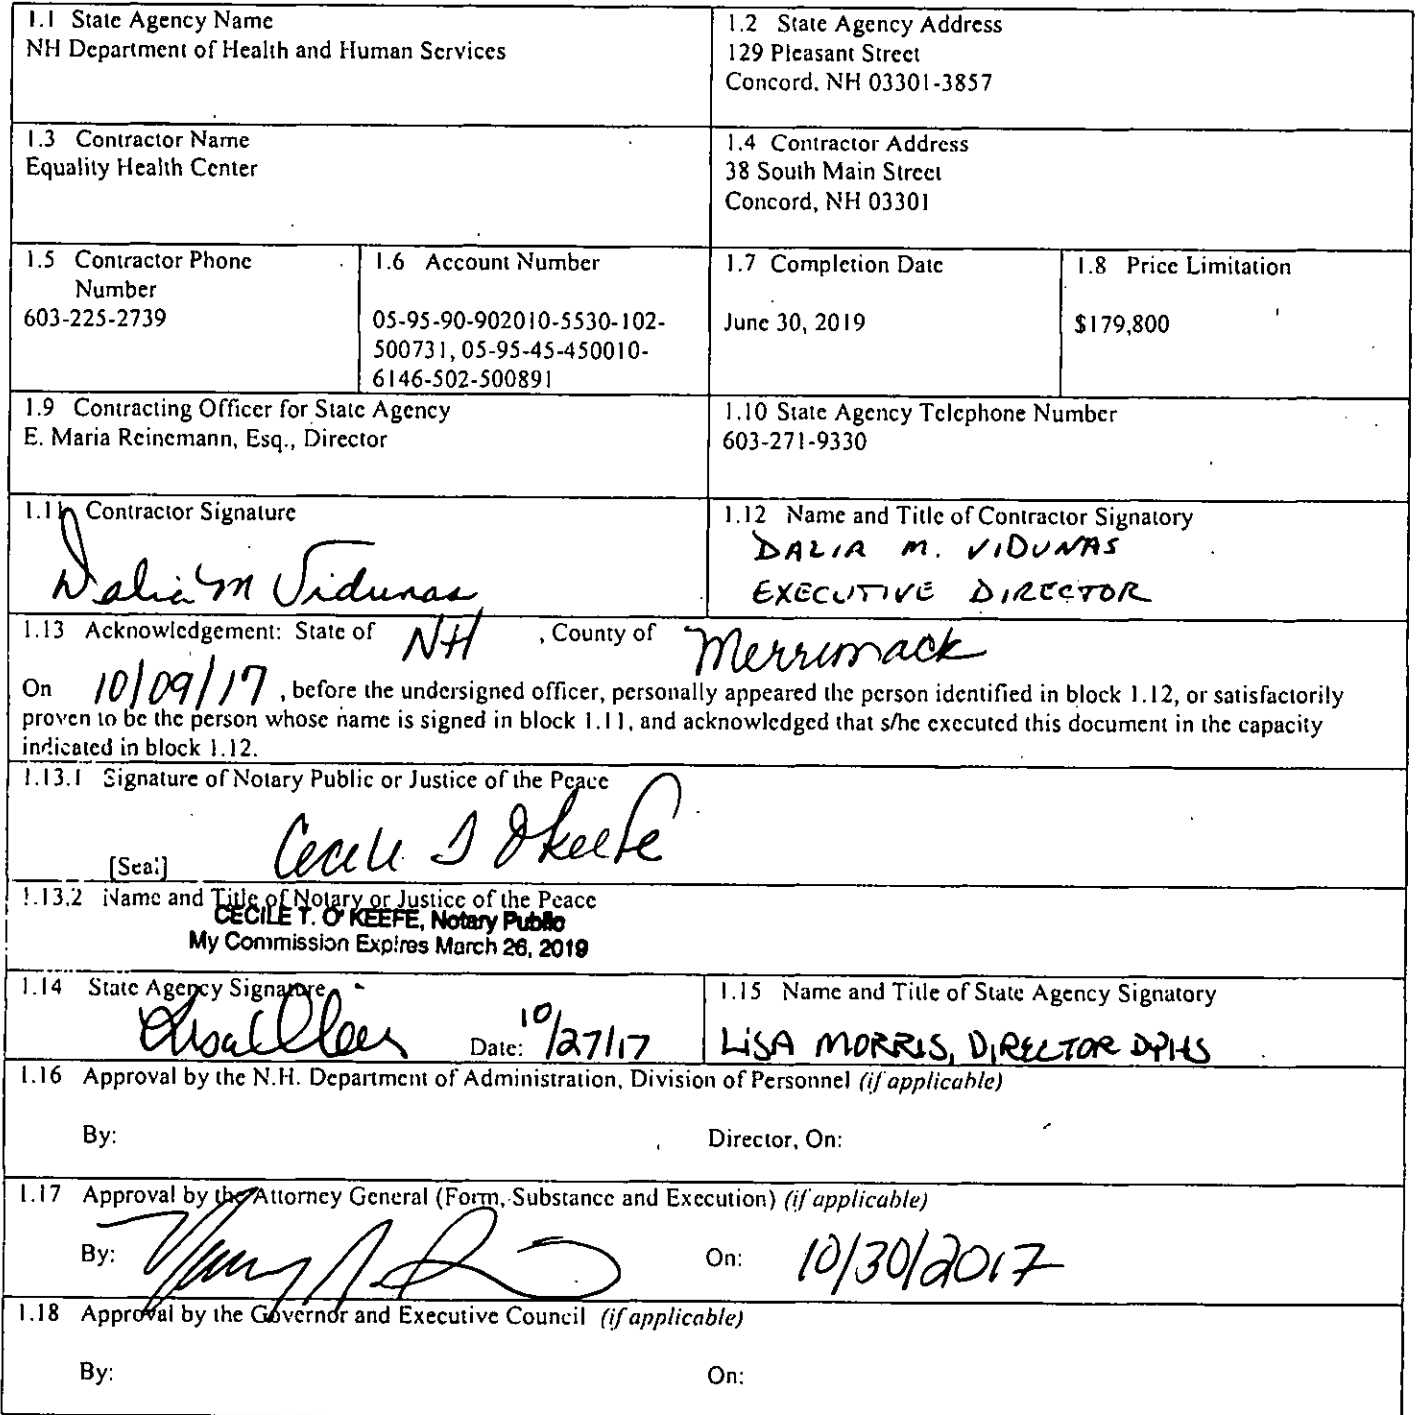 1.1 State Agency Name
NH Department of Health and Human Services
1.2 State Agency Address
129 Pleasant Street
Concord, NH 03301-3857
1.3 Contractor Name
Equality Health Center
1.4 Contractor Address
38 South Main Street
Concord, NH 03301
1.5 Contractor Phone
Number
603-225-2739
1.6 Account Number
05-95-90-902010-5530-102-
500731, 05-95-45-450010-
6146-502-500891
1.7 Completion Date
June 30, 2019
1.8 Price Limitation
$179,800
1.9 Contracting Officer for State Agency
E. Maria Reinemann, Esq., Director
1.10 State Agency Telephone Number
603-271-9330
1.11 Contractor Signature
Dalia M Vidunas
1.12 Name and Title of Contractor Signatory
DALIA M. VIDUNAS
EXECUTIVE DIRECTOR
1.13 Acknowledgement: State of NH , County of Merrimack
On 10/09/17 , before the undersigned officer, personally appeared the person identified in block 1.12, or satisfactorily
proven to be the person whose name is signed in block 1.11, and acknowledged that s/he executed this document in the capacity
indicated in block 1.12.
1.13.1 Signature of Notary Public or Justice of the Peace
Cecile T O'Keefe
[Seal]
1.13.2 Name and Title of Notary or Justice of the Peace
CECILE T. O'KEEFE, Notary Public
My Commission Expires March 26, 2019
1.14 State Agency Signature
Date: 10/27/17
1.15 Name and Title of State Agency Signatory
LISA MORRIS, DIRECTOR DPHS
1.16 Approval by the N.H. Department of Administration, Division of Personnel (if applicable)
By: Director, On:
1.17 Approval by the Attorney General (Form, Substance and Execution) (if applicable)
By: On: 10/30/2017
1.18 Approval by the Governor and Executive Council (if applicable)
By: On: